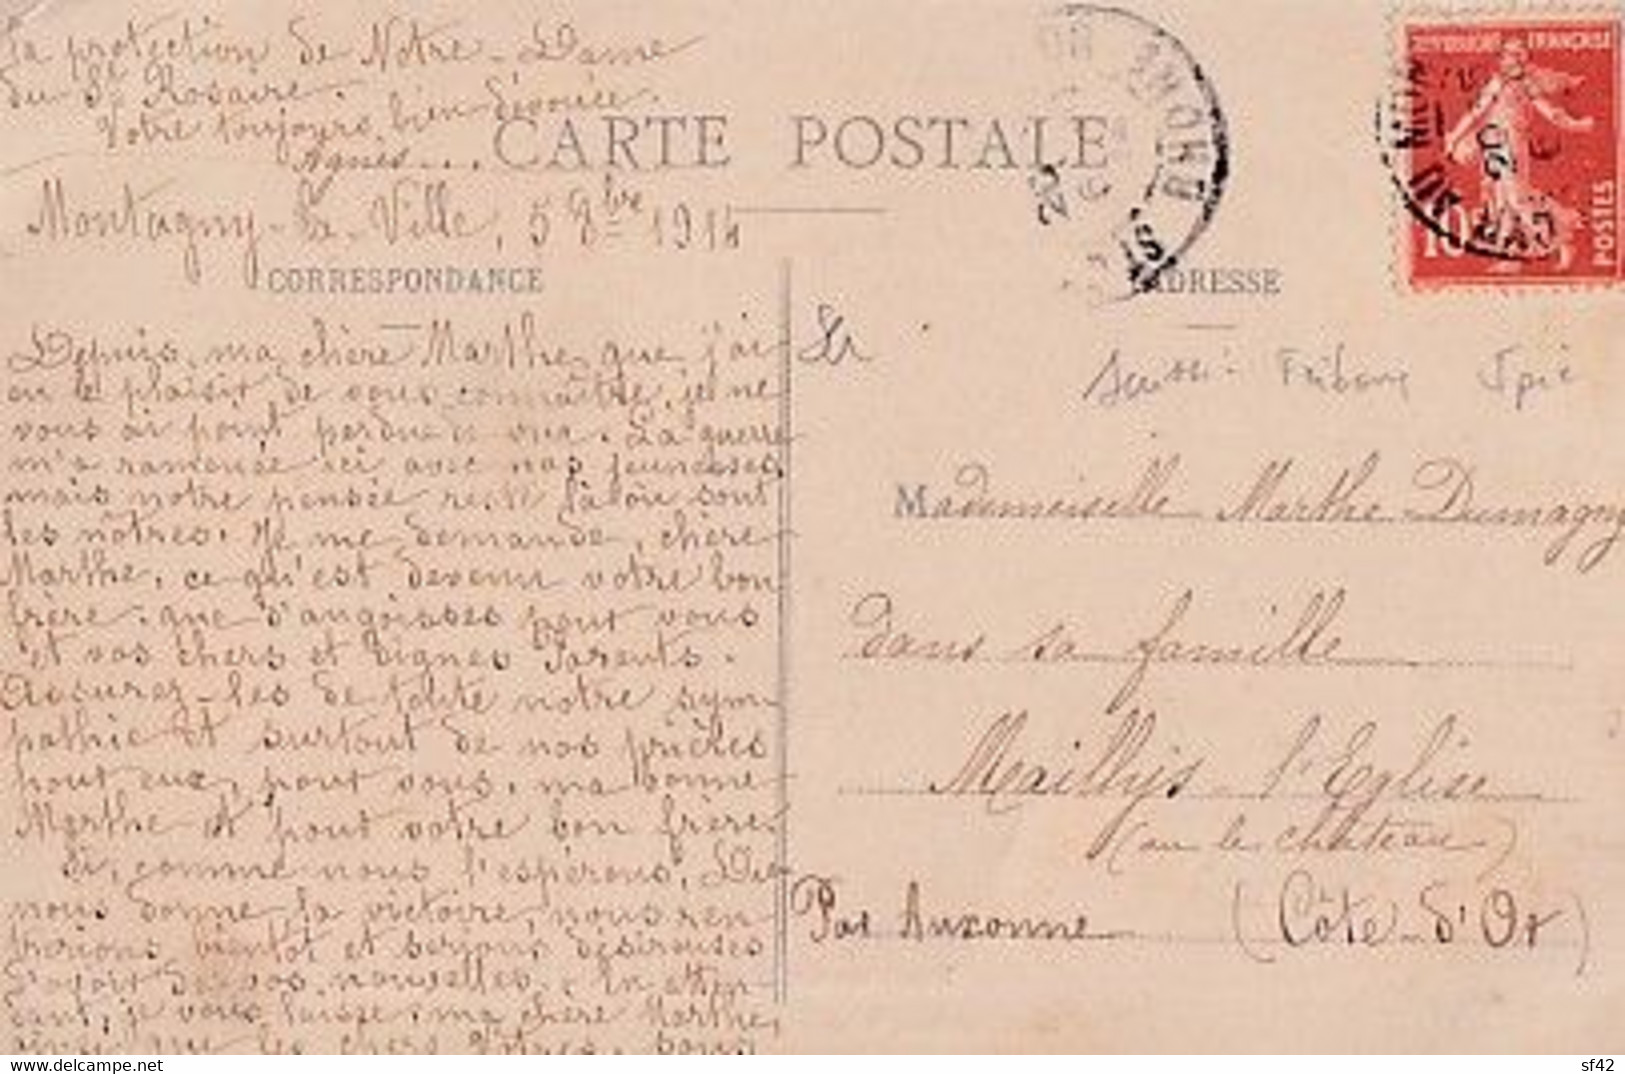 la protection de Notre-Dame
du St Rosaire.
Votre toujours bien dévouée.
Agnès...
CARTE POSTALE
Montagny-la-Ville, 5 8bre 1914
CORRESPONDANCE
Depuis, ma chère Marthe, que j'ai
eu le plaisir de vous connaître, je ne
vous ai point perdue de vue. La guerre
m'a ramenée ici avec nos jeunesses,
mais notre pensée reste là où sont
les nôtres. Je me demande, chère
Marthe, ce qu'est devenu votre bon
frère. que d'angoisses pour vous
et vos chers et dignes Parents.
Assurez-les de toute notre sym-
pathie et surtout de nos prières
pour eux, pour vous, ma bonne
Marthe et pour votre bon frère.
Si, comme nous l'espérons, Dieu
nous donne la victoire, nous ren-
trerions bientôt et serions désireuses
d'avoir de vos nouvelles. En atten-
dant, je vous laisse, ma chère Marthe,
ainsi que les chers vôtres, sous
REPUBLIQUE FRANÇAISE
10
POSTES
ADRESSE
Mademoiselle Marthe Dumagny
dans sa famille
Maillys l'Eglise
(ou le château)
Par Auxonne (Côte d'Or)
delcampe.net
sf42